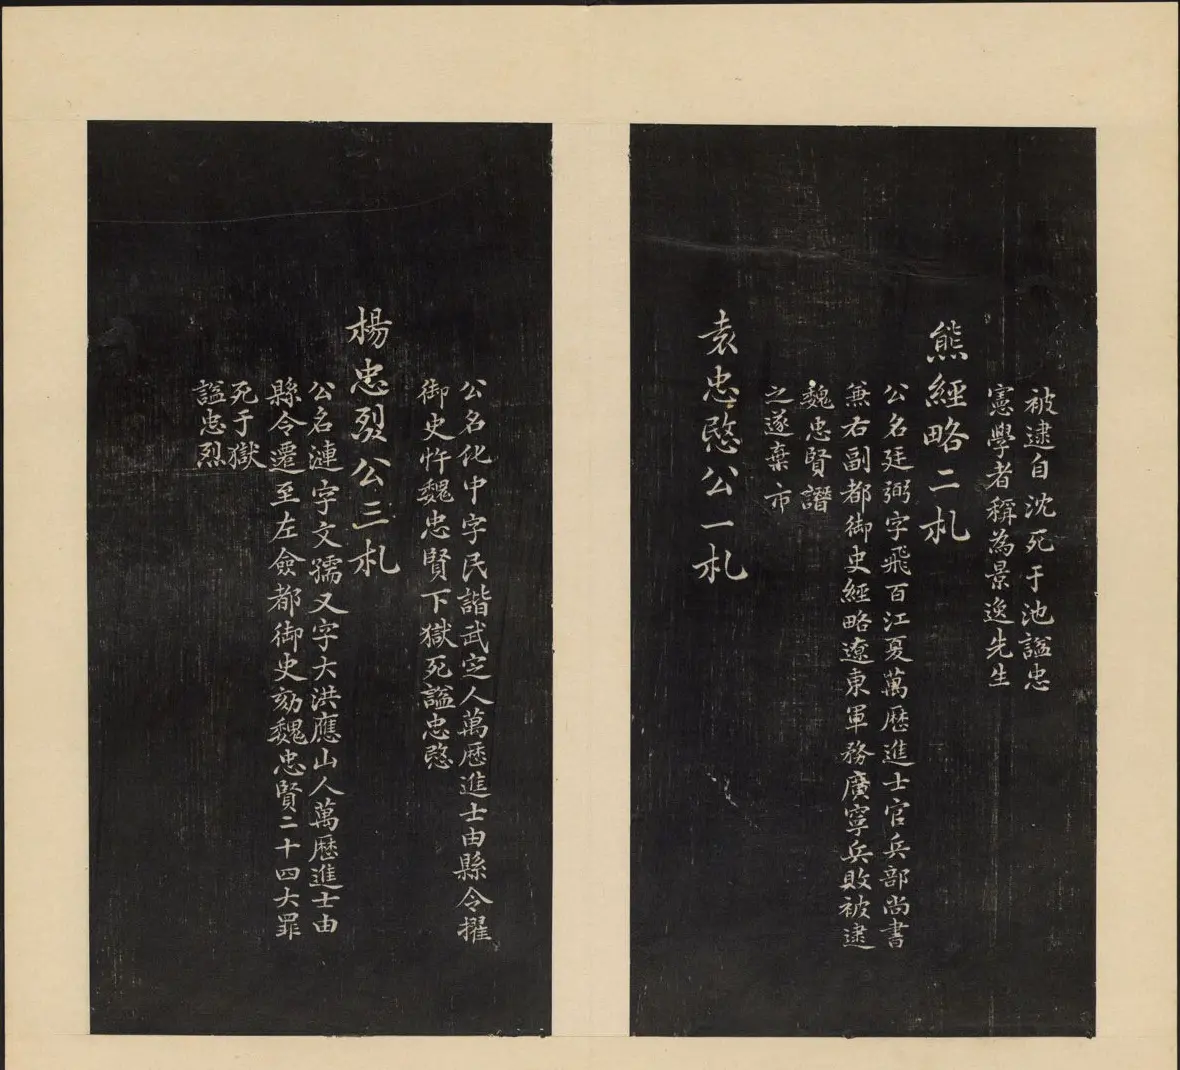 被逮自沈死于池謚忠
憲學者稱為景逸先生
熊經略二札
公名廷弼字飛百江夏萬歷進士官兵部尚書
兼右副都御史經略遼東軍務廣寧兵敗被逮
魏忠賢譖
之遂棄市
袁忠愍公一札
公名化中字民諧武定人萬歷進士由縣令擢
御史忤魏忠賢下獄死謚忠愍
楊忠烈公三札
公名漣字文孺又字大洪應山人萬歷進士由
縣令遷至左僉都御史劾魏忠賢二十四大罪
死于獄
謚忠烈